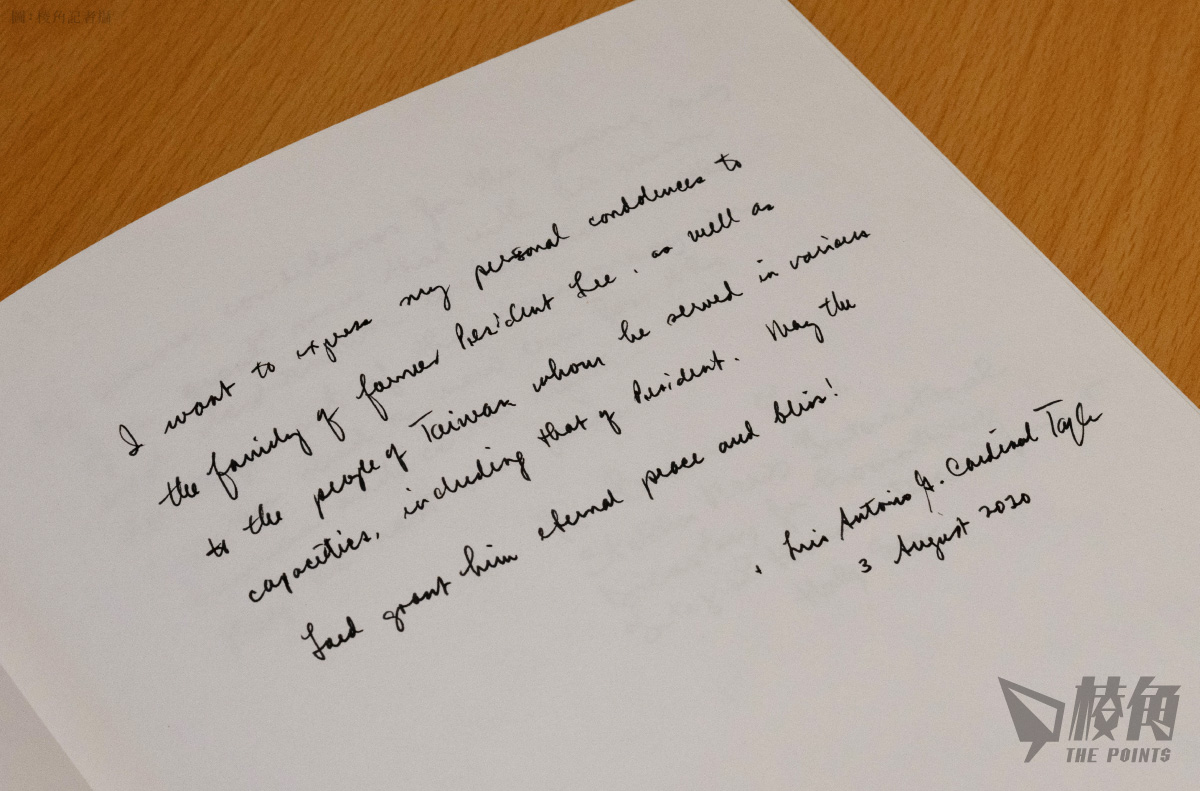 圖:棱角記者攝
I want to express my personal condolences to
the family of former President Lee, as well as
to the people of Taiwan whom he served in various
capacities, including that of President. May the
Lord grant him eternal peace and bliss!
+ Luis Antonio G. Cardinal Tagle
3 August 2020
棱角
THE POINTS